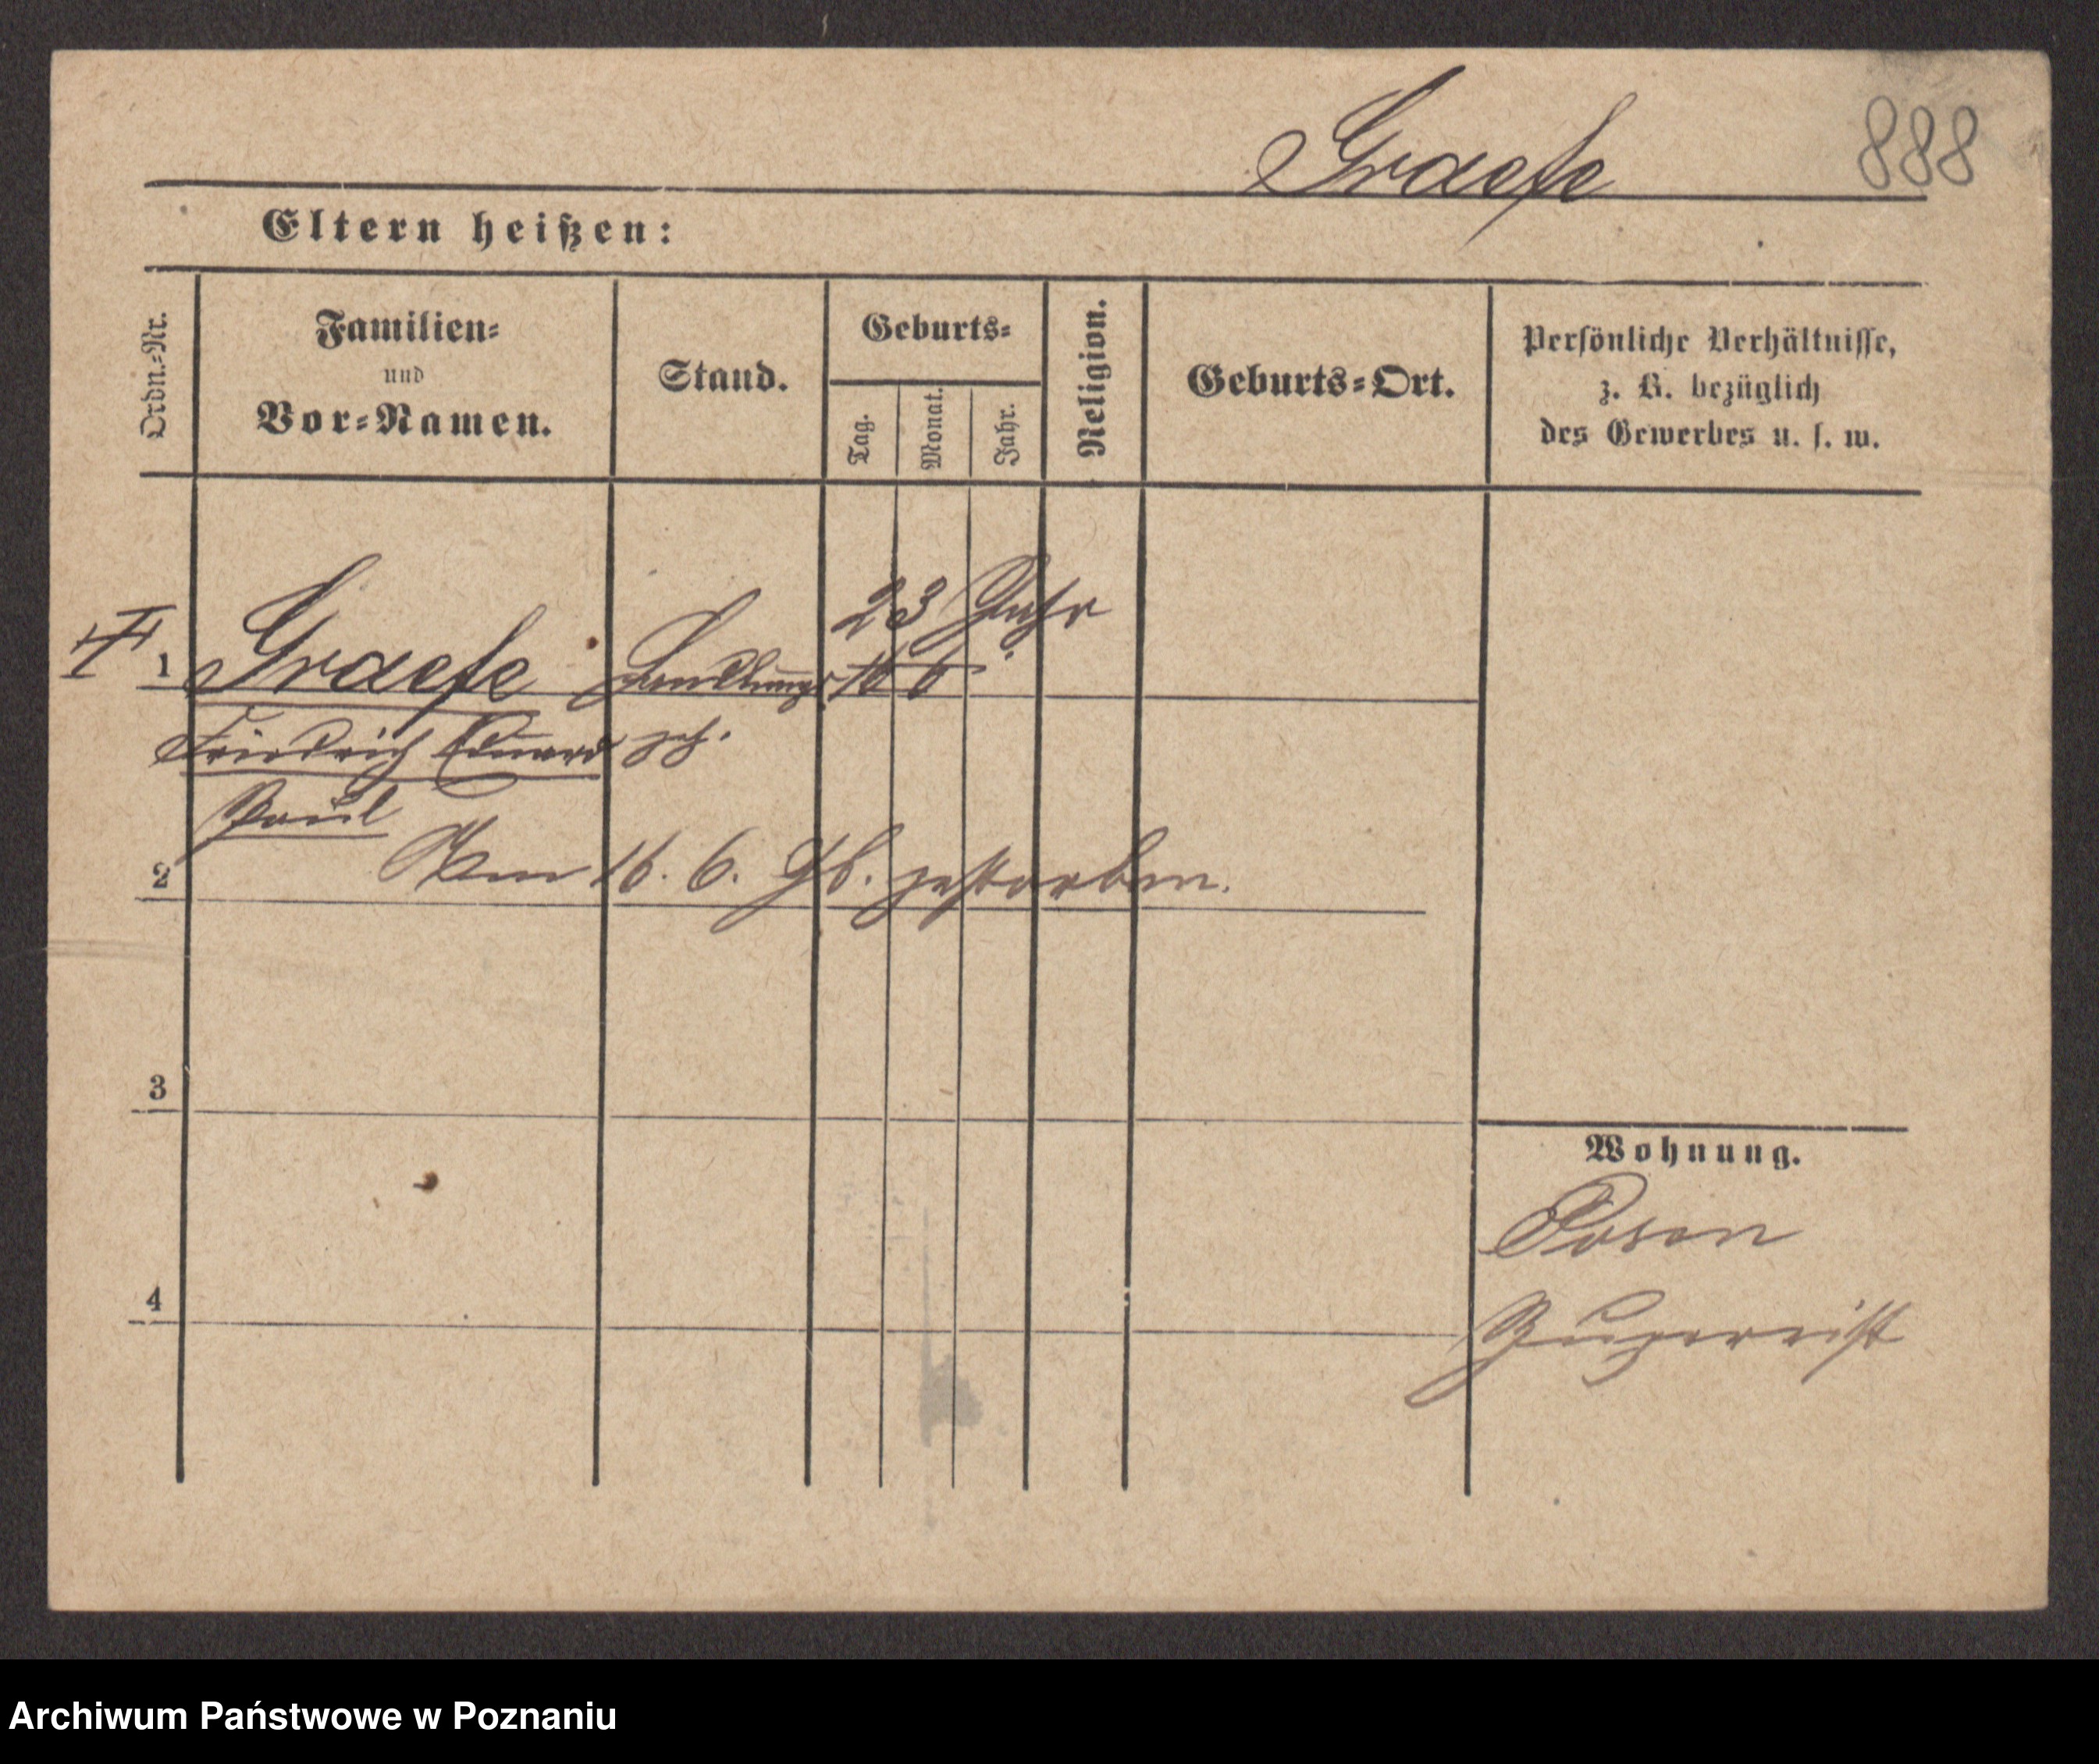 Graefe 888
Eltern heißen:
Ordn.=Nr.
Familien=
und
Vor=Namen.
Stand.
Geburts=
Tag.
Monat.
Jahr.
Religion.
Geburts=Ort.
Persönliche Verhältnisse,
z. B. bezüglich
des Gewerbes u. s. w.
23 Jahr
1 Graefe Handlungs 16 6
Friedrich Eduard geh.
Paul
2 Am 16. 6. 96. gestorben.
3
Wohnung.
Posen
4
Zugereist
Archiwum Państwowe w Poznaniu